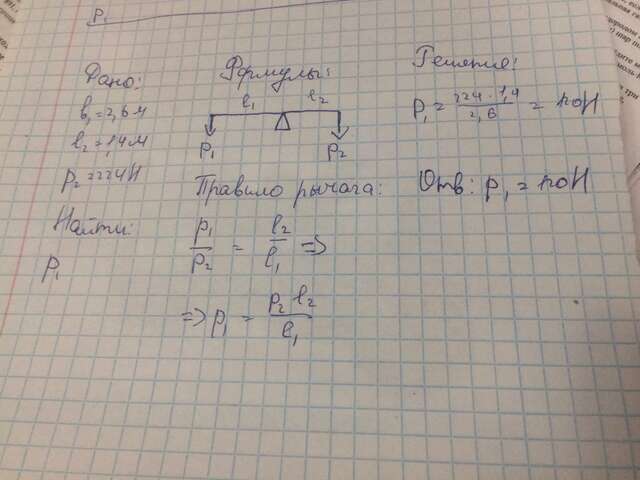 P₁
Дано:
l₁ = 2,6 м
l₂ = 1,4 м
P₂ = 224 Н
Найти:
P₁
Формулы:
l₁ l₂
P₁ P₂
Правило рычага:
P₁/P₂ = l₂/l₁ =>
=> P₁ = P₂ l₂/l₁
Решение:
P₁ = 224 · 1,4/2,6 = 120Н
Отв: P₁ = 120Н